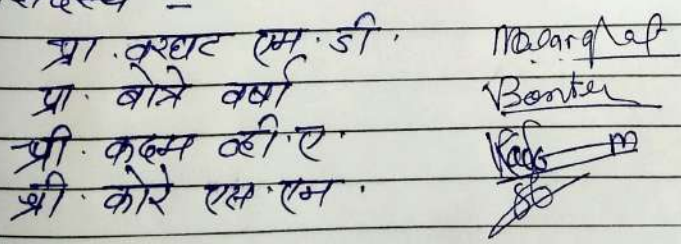 सदस्य -
प्रा. वरघट एम. डी.
प्रा. बोत्रे वर्षा
श्री. कदम व्ही. ए.
श्री. कोरे एस. एम.